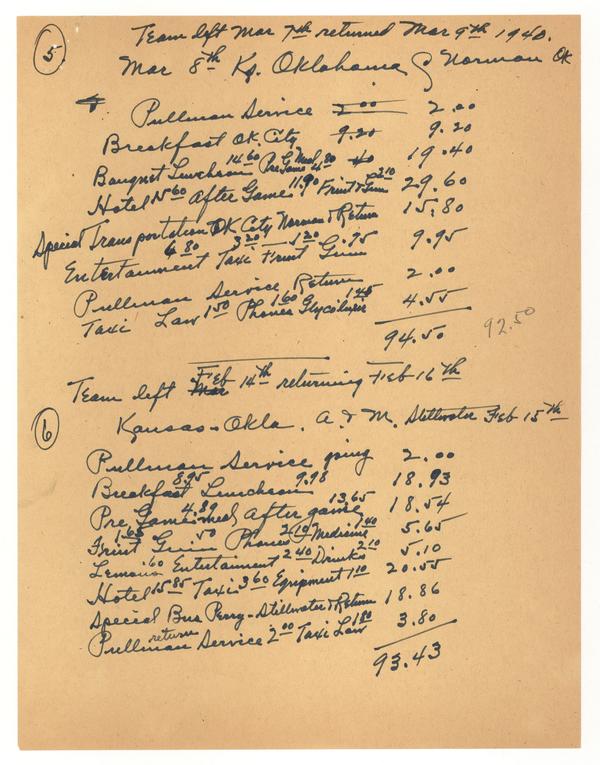 5 Team left Mar 7th returned Mar 9th 1940.
Mar 8th Ks. Oklahoma @ Norman OK
Pullman Service 2.00 2.00
Breakfast OK. City 9.20 9.20
Banquet Luncheon 14.60 Pre Game Meal 4.80 19.40
Hotel 15.60 After Game 11.90 Fruit & Gum 2.10 29.60
Special Transportation OK City Norman & Return 15.80
Entertainment 4.80 Taxi 3.20 Fruit 1.20 Gum .75 9.95
Pullman Service Return 2.00
Taxi Law 1.50 Phones 1.60 Glycolixer 1.45 4.55
94.50 92.50
Team left Mar Feb 14th returning Feb 16th
6 Kansas - Okla. A. & M. Stillwater Feb 15th
Pullman Service going 2.00
Breakfast 8.95 Luncheon 9.98 18.93
Pre Game meal 4.89 After game 13.65 18.54
Fruit 1.65 Gum .50 Phones 2.10 Medicine 1.40 5.65
Lemons .60 Entertainment 2.40 Drinks 2.10 5.10
Hotel 15.85 Taxi 3.60 Equipment 1.10 20.55
Special Bus Perry - Stillwater & Return 18.86
Pullman return Service 2.00 Taxi Law 1.80 3.80
93.43